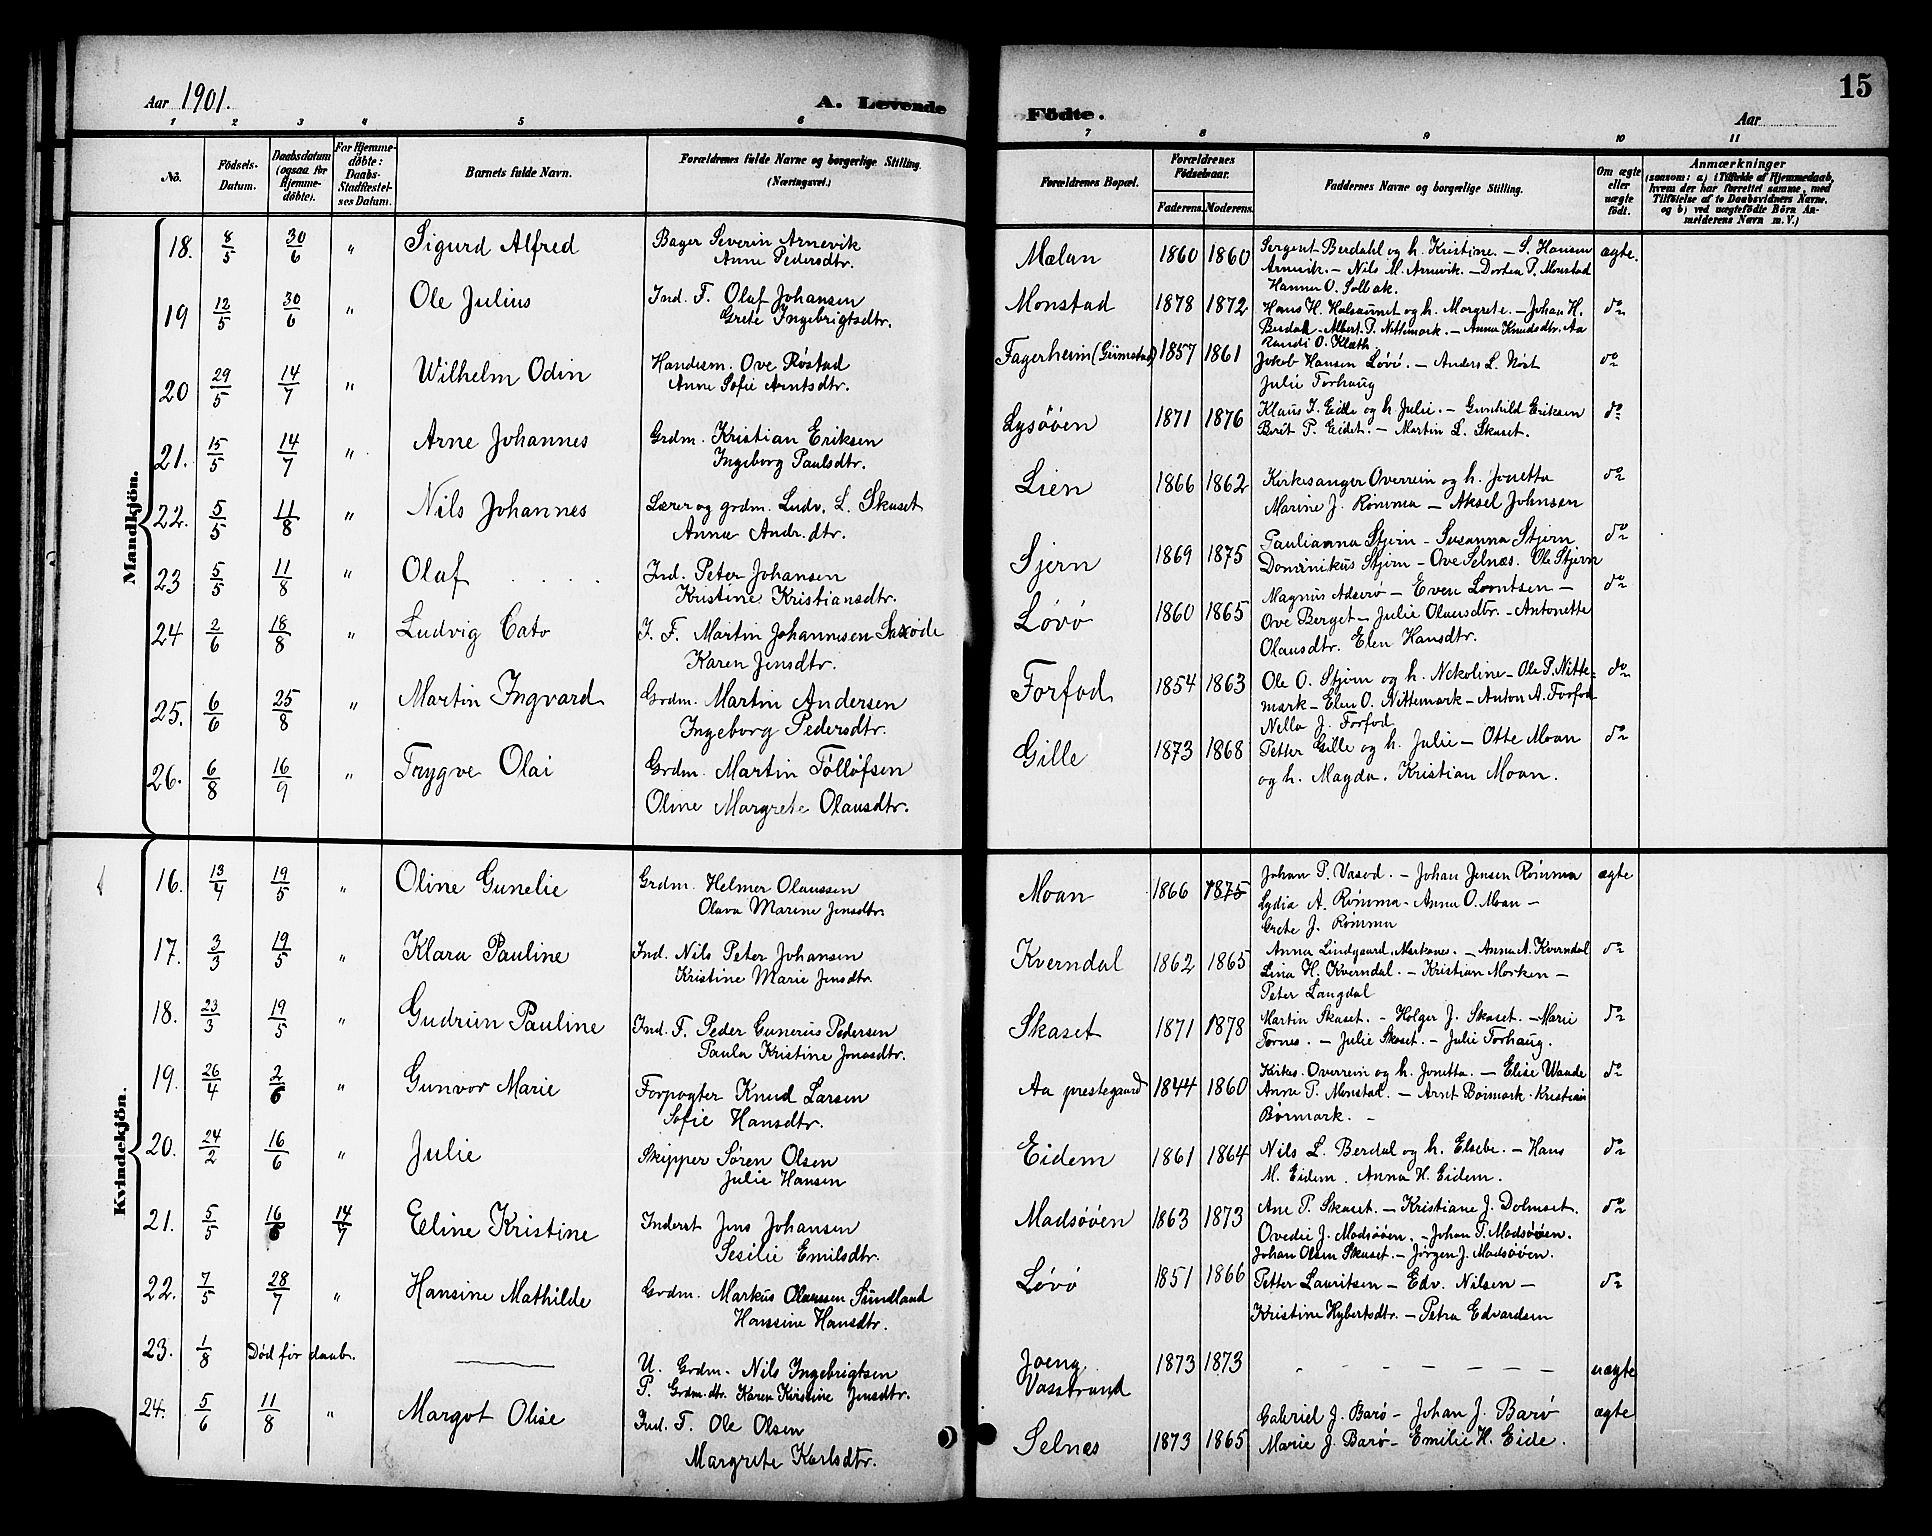 Aar 1901.
A. Levende
Födte.
Aar
15
1 2 3 4 5 6 7 8 9 10 11
No.
Födsels-Datum.
Daabsdatum (ogsaa for Hjemmedøbte).
For Hjemmedøbte: Daabs-Stadfæstelses Datum.
Barnets fulde Navn.
Forældrenes fulde Navne og borgerlige Stilling. (Næringsvei.)
Forældrenes Bopæl.
Forældrenes Födselsaar.
Faderens. Moderens.
Faddernes Navne og borgerlige Stilling.
Om ægte eller uægte födt.
Anmærkninger
(saasom: a) i Tilfælde af Hjemmedaab, hvem der har forrettet samme, med Tilföielse af to Daabsvidners Navne, og b) ved uægtefödte Börn Anmelderens Navn m. V.)
Mandkjön.
18. 8/5 30/6 " Sigurd Alfred Bager Severin Arnevik Mælan 1860 1860 Sergent Berdahl og h. Kristine. – S. Hansen ægte.
Anne Pedersdtr. Arnevik. – Nils M. Arnevik. – Dortea P. Monstad
Hanna O. Solbak.
19 12/5 30/6 " Ole Julius Ind. F. Olaf Johansen Monstad 1878 1872 Hans H. Halsaunet og h. Margrete. – Johan H. do
Grete Ingebrigtsdtr. Berdah. – Albert P. Nittemark. – Anna Knudsdtr. Aa
Randi O. Klæth.
20 29/5 14/7 " Wilhelm Odin Handesm. Ove Röstad Fagerheim (Grimstad) 1857 1861 Jakob Hansen Lövö. – Anders L. Nöst do
Anne Sofie Arntsdtr. Julie Forhaug
21. 15/5 14/7 " Arne Johannes Grdm. Kristian Eriksen Lysöön 1871 1876 Klaus I. Eide og h. Julie. – Gunhild Eriksen do
Ingeborg Paulsdtr. Berit P. Eidet. – Martin L. Skaset.
22. 5/5 11/8 " Nils Johannes Lærer og grdm. Ludv. L. Skaset Lien 1866 1862 Kirkesanger Overrein og h. Jonetta do
Anna Andr.dtr. Marine J. Römma – Aksel Johnsen
23 5/5 11/8 " Olaf Ind. Peter Johansen Sjern 1869 1875 Paulianna Stjern – Susanna Stjern do
Kristine Kristiansdtr. Dominikus Stjern – Ove Selnes. Ole Stjern
24 2/6 18/8 " Ludvig Cato I. F. Martin Johannesen Lövö 1860 1865 Magnus Adserö – Even Lorntsen – do
Karen Jensdtr. Ove Berget – Julie Olausdtr. – Antonette
Olausdtr. Elen Hansdtr.
25. 6/6 25/8 " Martin Ingvard Grdm. Martin Andersen Forfod 1854 1863 Ole O. Stjern og h. Nekoline – Ole P. Nitte- do
Ingeborg Pedersdtr. mark – Elen O. Nittemark – Anton A. Forfod
Nella J. Forfod
26. 6/8 16/9 " Trygve Olai Grdm. Martin Töllöfsen Gille 1873 1868 Petter Gille og h. Julie – Otte Moan do
Oline Margrete Olausdtr. og h. Magda. Kristian Moan.
Kvindekjön.
16. 13/4 19/5 " Oline Gunelie Grdm. Helmer Olaussen Moan 1866 1875 Johan P. Vasöd. – Johan Jensen Römma ægte
Olava Marine Jensdtr. Lydia A. Römma – Anna O. Moan –
Grete J. Römma
17. 3/3 19/5 " Klara Pauline Ind. Nils Peter Johansen Kverndal 1862 1865 Anna Lindgaard, Markane. – Anna A. Kverndal do
Kristine Marie Jensdtr. Lina H. Kverndal. – Kristian Morken –
Peter Langdal
18. 23/3 19/5 " Gudrun Pauline Ind. F. Peder Gunerius Pedersen Skaset 1871 1878 Martin Skaset. – Holger J. Skaset. – Marie do
Paula Kristine Jonasdtr. Fornes. – Julie Skaset. – Julie Forhaug.
19. 26/4 2/6 " Gunvor Marie Forpagter Knud Larsen Aa prestegaard 1844 1860 Kirkes. Overrein og h. Jonetta. – Elise Waade do
Sofie Hansdtr. Anne P. Monstad. – Arnt Börmark. Kristian
Börmark. –
20. 24/2 16/6 " Julie Skipper Sören Olsen Eidem 1861 1864 Nils L. Berdal og h. Elsebe. – Hans do
Julie Hansen M. Eidem. Anna H. Eidem.
21. 5/5 16/6 14/7 Eline Kristine Inderst Jens Johansen Madsöön 1863 1873 Ane P. Skaset. – Kristiane J. Dolmset. do
Sesilie Emilsdtr. Ovedie J. Madsöön. – Johan P. Madsöön.
Johan Olsen Skaset. – Jörgen J. Madsöön.
22. 7/5 28/7 " Hansine Mathilde Grdm. Markus Olaussen Sundland Lövö 1851 1866 Petter Lauritsen – Edv. Nilsen – do
Hanssine Hansdtr. Kristine Hybertsdtr. – Petra Edvardsen
23. 1/8 Död för daab. — U. Grdm. Nils Ingebrigtsen Joeng 1873 1873 – – – – – – – uægte
P. Grdm.dtr. Karen Kristine Jensdtr. Vasstrand
24. 5/6 11/8 " Margot Olise Ind. F. Ole Olsen Selnes 1873 1865 Gabriel J. Barö – Johan J. Barö ægte
Margrete Karlsdtr. Marie J. Barö – Emilie H. Eide.